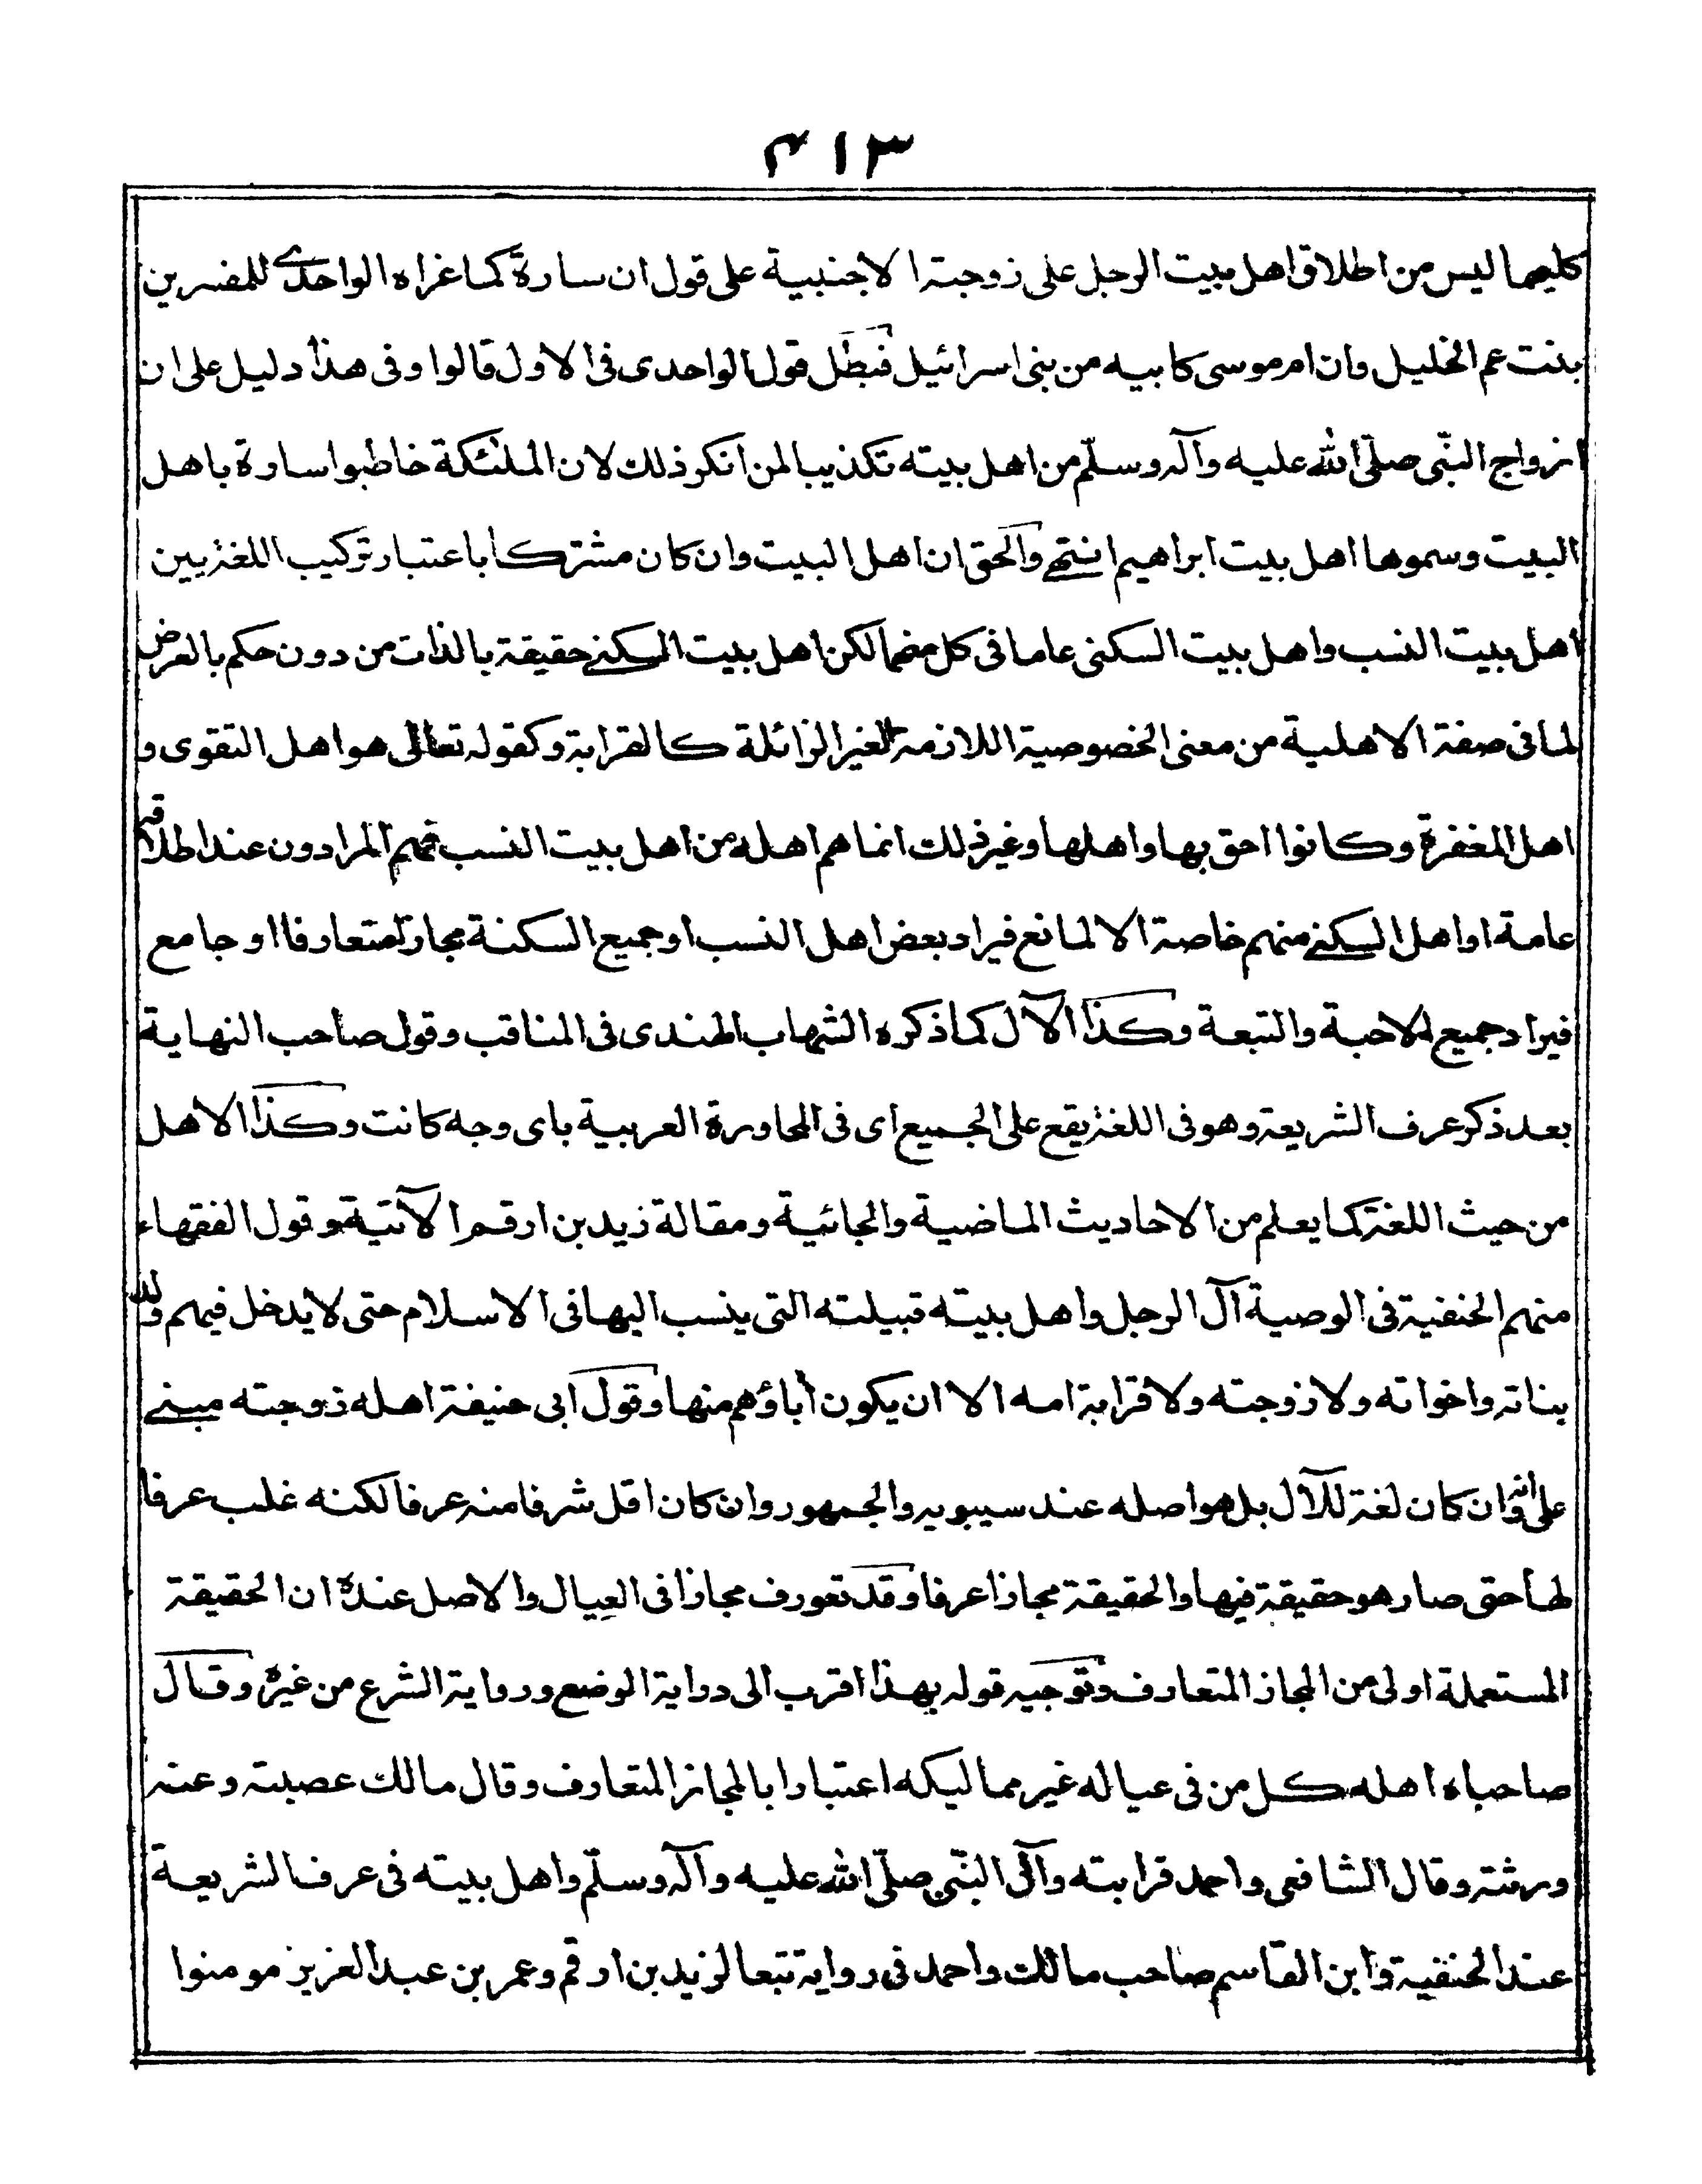 ٤١٣
كليهما ليس من اطلاق اهل بيت الرجل على زوجته الاجنبية على قول ان سارة كما غراه الواحدى للمفسرين
بنت عم الخليل وان ام موسى كابيه من بنى اسرائيل فبطل قول الواحدى فى الاول قالوا وفى هذا دليل على ان
ازواج النّبى صلّى الله عليه وآله وسلّم من اهل بيته تكذيبا لمن انكر ذلك لان الملئكة خاطبوا سارة باهل
البيت وسموها اهل بيت ابراهيم انتهى والحق ان اهل البيت وان كان مشتركا باعتبار تركيب اللغة بين
اهل بيت النسب واهل بيت السكنى عاما فى كل منهما لكن اهل بيت السكنى حقيقة بالذات من دون حكم بالعرض
لما فى صفة الاهلية من معنى الخصوصية اللازمة الغير الزائلة كالقرابة وكقوله تعالى هو اهل التقوى و
اهل المغفرة وكانوا احق بها واهلها وغير ذلك انما هم اهله من اهل بيت النسب فهم المرادون عند اطلاقه
عامة او اهل السكنى منهم خاصة الا لمانع فيراد بعض اهل النسب او جميع السكنة مجازا متعارفا او جامع
فيراد جميع الاحبة والتبعة وكذا الآل كما ذكره الشهاب الهندى فى المناقب وقول صاحب النهاية
بعد ذكر عرف الشريعة وهو فى اللغة يقع على الجميع اى فى المحاورة العربية باى وجه كانت وكذا الاهل
من حيث اللغة كما يعلم من الاحاديث الماضية والجائية ومقالة زيد بن ارقم الآتية وقول الفقهاء
منهم الحنفية فى الوصية آل الرجل واهل بيته قبيلته التى ينسب اليها فى الاسلام حتى لا يدخل فيهم ولد
بناته واخواته ولا زوجته ولا قرابة امه الا ان يكون أباؤهم منها وقول ابى حنيفة اهله زوجته مبنى
على انه وان كان لغة للآل بل هو اصله عند سيبويه والجمهور وان كان اقل شرفا منه عرفا لكنه غلب عرفا
لها حتى صار هو حقيقة فيها والحقيقة مجازا عرفا وقد تعورف مجازا فى العيال والاصل عنده ان الحقيقة
المستعملة اولى من المجاز المتعارف وتوجيه قوله بهذا اقرب الى دراية الوضع ورواية الشرع من غيره وقال
صاحباه اهله كل من فى عياله غير مماليكه اعتبارا بالمجاز المتعارف وقال مالك عصبته وعنه
ورثته وقال الشافعى واحمد قرابته وآل النّبى صلّى الله عليه وآله وسلّم واهل بيته فى عرف الشريعة
عند الحنفية وابن القاسم صاحب مالك واحمد فى رواية تبعا لزيد بن ارقم وعمر بن عبد العزيز مومنوا